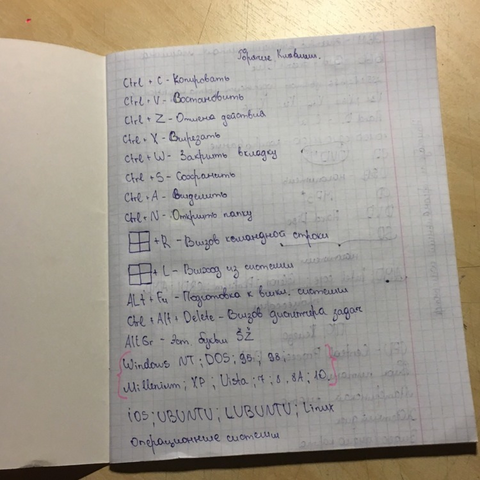 Горячие Клавиши.
Ctrl + C - Копировать
Ctrl + V - Востановить
Ctrl + Z - Отмена действия
Ctrl + X - Вырезать
Ctrl + W - Закрыть вкладку
Ctrl + S - Сохранить
Ctrl + A - Выделить
Ctrl + N - Открыть папку
+ R - Вызов командной строки
+ L - Выход из системы
ALt + F4 - Подготовка к выкл. системы
Ctrl + Alt + Delete - Вызов диспетчера задач
Alt Gr - эст. буквы ŠŽ
Windows NT; DOS; 95; 98;
Millenium; XP; Vista; 7; 8; 8.1; 10.
iOS; UBUNTU; LUBUNTU; Linux
Операционные системы